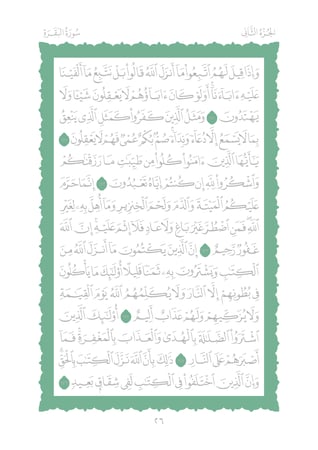 الجزء الثاني
سورة البقرة
وَإِذَا قِيلَ لَهُمُ ٱتَّبِعُوا۟ مَآ أَنزَلَ ٱللَّهُ قَالُوا۟ بَلْ نَتَّبِعُ مَآ أَلْفَيْنَا
عَلَيْهِ ءَابَآءَنَآ أَوَلَوْ كَانَ ءَابَآؤُهُمْ لَا يَعْقِلُونَ شَيْـًٔا وَلَا
يَهْتَدُونَ وَمَثَلُ ٱلَّذِينَ كَفَرُوا۟ كَمَثَلِ ٱلَّذِى يَنْعِقُ
بِمَا لَا يَسْمَعُ إِلَّا دُعَآءً وَنِدَآءً صُمٌّۢ بُكْمٌ عُمْىٌ فَهُمْ لَا يَعْقِلُونَ
يَـٰٓأَيُّهَا ٱلَّذِينَ ءَامَنُوا۟ كُلُوا۟ مِن طَيِّبَـٰتِ مَا رَزَقْنَـٰكُمْ
وَٱشْكُرُوا۟ لِلَّهِ إِن كُنتُمْ إِيَّاهُ تَعْبُدُونَ إِنَّمَا حَرَّمَ
عَلَيْكُمُ ٱلْمَيْتَةَ وَٱلدَّمَ وَلَحْمَ ٱلْخِنزِيرِ وَمَآ أُهِلَّ بِهِۦ لِغَيْرِ
ٱللَّهِ فَمَنِ ٱضْطُرَّ غَيْرَ بَاغٍ وَلَا عَادٍ فَلَآ إِثْمَ عَلَيْهِ إِنَّ ٱللَّهَ
غَفُورٌ رَّحِيمٌ إِنَّ ٱلَّذِينَ يَكْتُمُونَ مَآ أَنزَلَ ٱللَّهُ مِنَ
ٱلْكِتَـٰبِ وَيَشْتَرُونَ بِهِۦ ثَمَنًا قَلِيلًا أُو۟لَـٰٓئِكَ مَا يَأْكُلُونَ
فِى بُطُونِهِمْ إِلَّا ٱلنَّارَ وَلَا يُكَلِّمُهُمُ ٱللَّهُ يَوْمَ ٱلْقِيَـٰمَةِ
وَلَا يُزَكِّيهِمْ وَلَهُمْ عَذَابٌ أَلِيمٌ أُو۟لَـٰٓئِكَ ٱلَّذِينَ
ٱشْتَرَوُا۟ ٱلضَّلَـٰلَةَ بِٱلْهُدَىٰ وَٱلْعَذَابَ بِٱلْمَغْفِرَةِ فَمَآ
أَصْبَرَهُمْ عَلَى ٱلنَّارِ ذَٰلِكَ بِأَنَّ ٱللَّهَ نَزَّلَ ٱلْكِتَـٰبَ بِٱلْحَقِّ
وَإِنَّ ٱلَّذِينَ ٱخْتَلَفُوا۟ فِى ٱلْكِتَـٰبِ لَفِى شِقَاقٍۭ بَعِيدٍ
٢٦